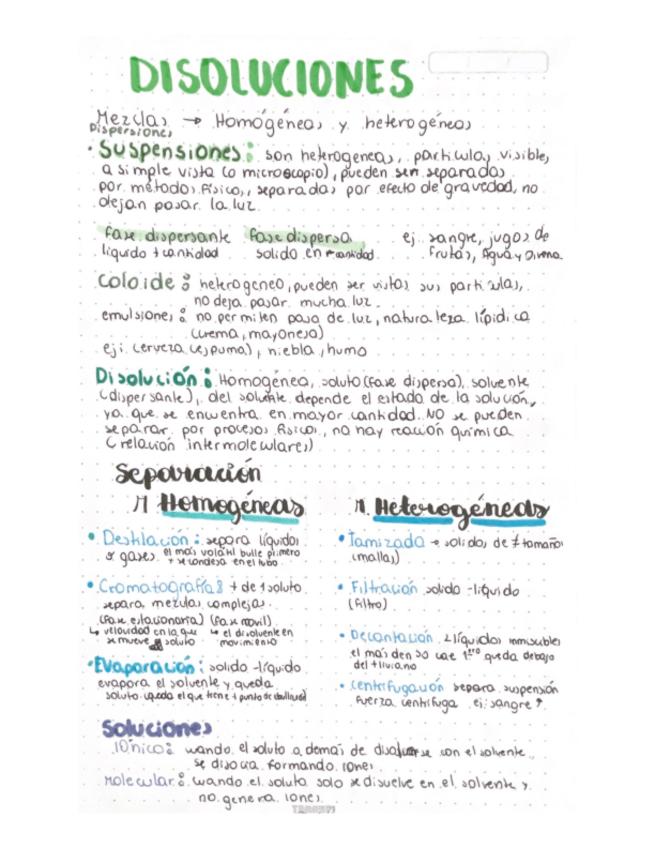 DISOLUCIONES
Mezclas → Homogéneas y heterogéneas
Dispersiones
• Suspensiones: son heterogeneas, particulas visibles,
a simple vista (o microscopio), pueden ser separadas
por métodos físicos, separadas por efecto de gravedad, no
dejan pasar la luz.
fase dispersante fase dispersa ej. sangre, jugos de
liquido + cantidad solido en - cantidad frutas, Agua y Arena
Coloide: heterogeneo, pueden ser vistas sus partículas,
no deja pasar mucha luz.
emulsiones: no permiten paso de luz, naturaleza lípidica
(crema, mayonesa)
ej: cerveza (espuma), niebla, humo
Disolución: Homogénea, soluto (fase dispersa), solvente
(dispersante), del solvente depende el estado de la solución,
ya que se encuentra en mayor cantidad. NO se pueden
separar por procesos físicos, no hay reacción química
(relación intermoleculares)
Separación
M Homogéneas
• Destilación: separa líquidos
y gases el más volatil bulle primero
+ se condesa en el tubo
• Cromatografía: + de 1 soluto
separa mezclas complejas
(fase estacionaria) (fase movil)
↳ velocidad en la que ↳ el disolvente en
se mueve soluto movimiento
• Evaporación: solido-líquido
evapora el solvente y queda
soluto (queda el que tiene + punto de ebullición)
M. Heterogéneas
• Tamizado → solidos de ≠ tamaños
(mallas)
• Filtración solido-líquido
(filtro)
• Decantación 2 líquidos inmiscibles
el más denso cae 1ero queda debajo
del + liviano
• Centrifugación separa suspensión
fuerza centrifuga ej: sangre ↑
Soluciones
Iónico: cuando el soluto a demás de disolverse con el solvente
se disocia formando iones
Molecular: cuando el soluto solo se disuelve en el solvente y
no genera iones.